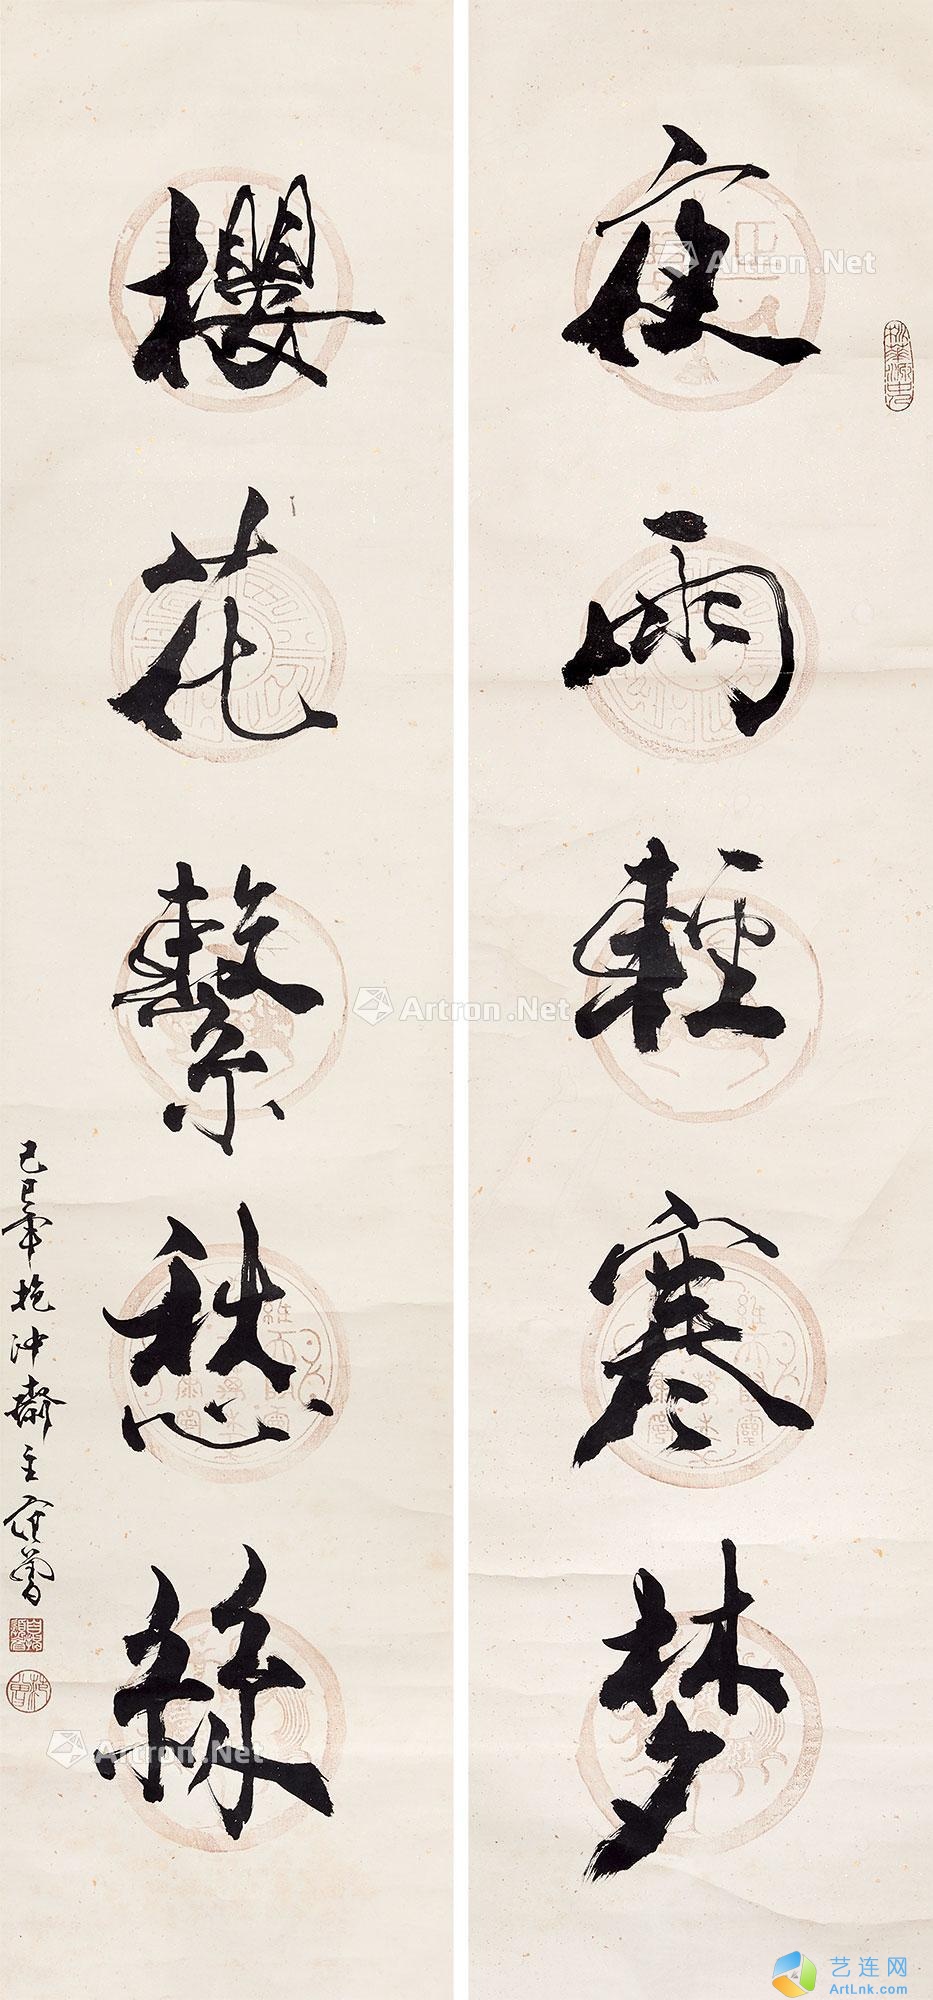 夜雨輕寒梦
櫻花繫愁絲
己巳年抱冲齋主范曾
Artron.Net
Artron.Net
Artron.Net
艺连网
ArtLnk.com